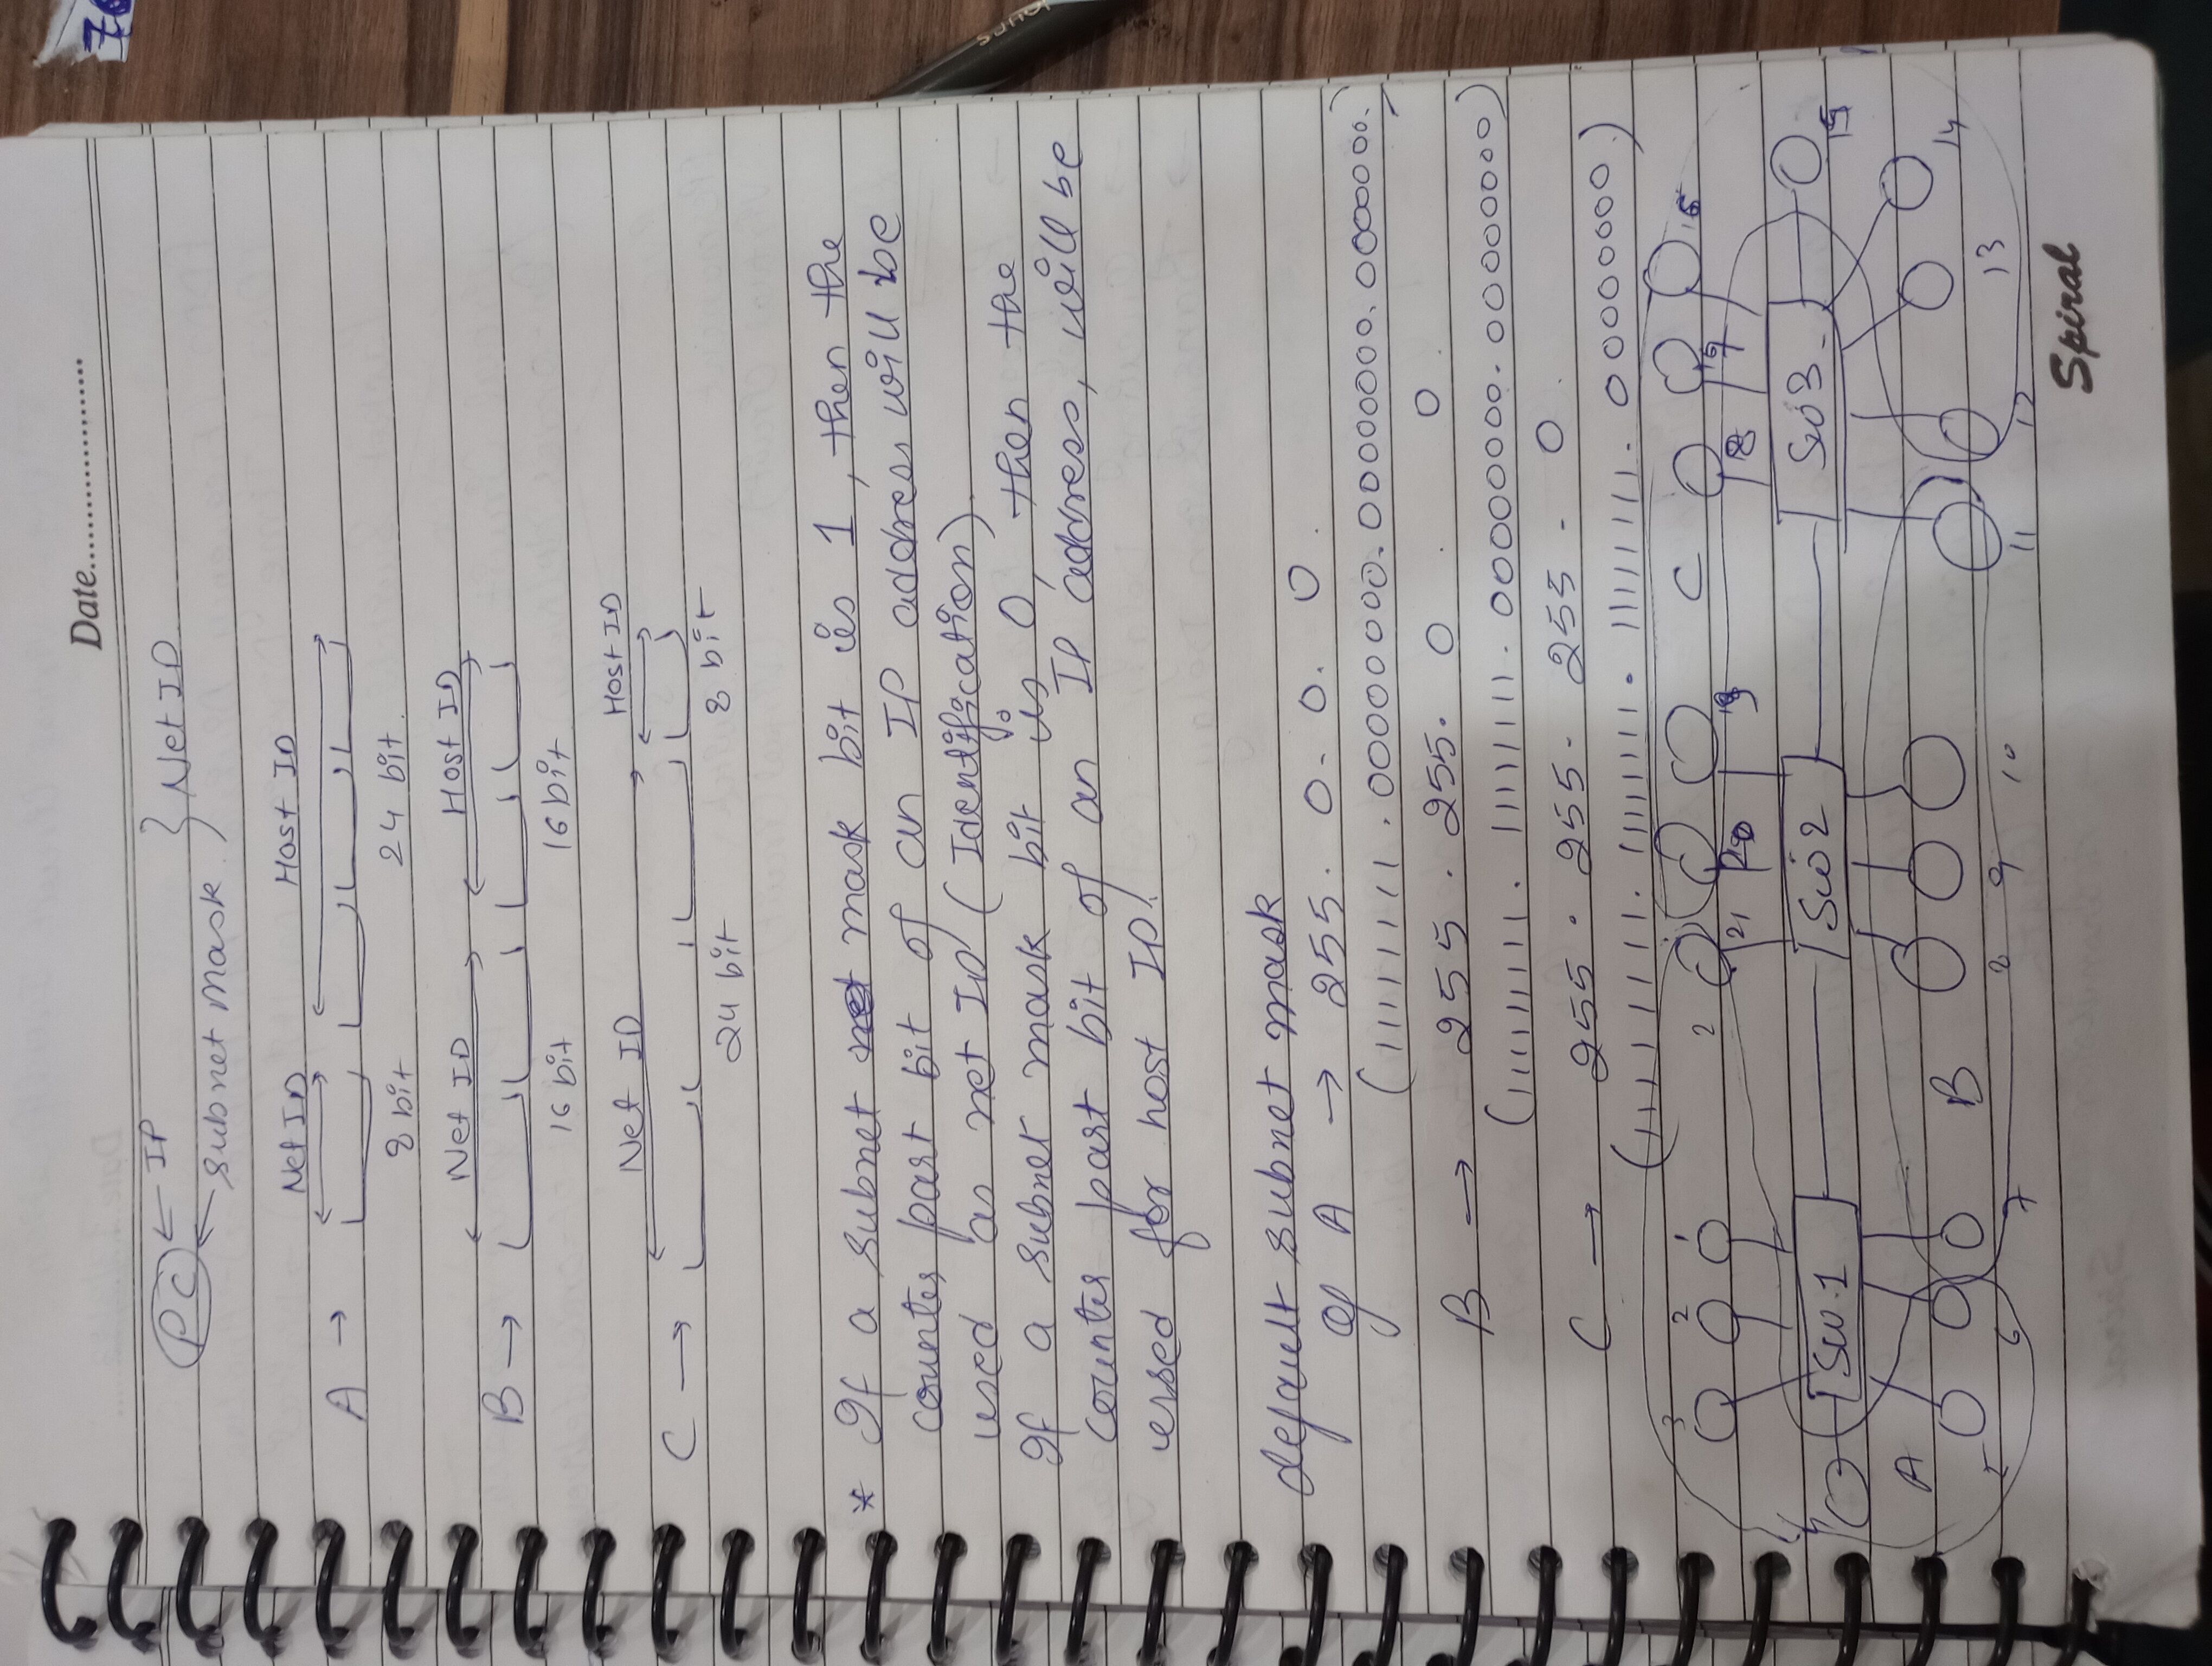 Date
PC ← IP
← subnet mask } Net ID
Net ID Host ID
A →
8 bit 24 bit
Net ID Host ID
B →
16 bit 16 bit
Net ID Host ID
C →
24 bit 8 bit
* If a subnet mask bit is 1, then the
counter part bit of an IP address will be
used as net ID (Identification)
If a subnet mask bit is 0, then the
counter part bit of an IP address, will be
ussed for host ID.
default subnet mask
of A → 255. 0. 0. 0.
(11111111.00000000.00000000.00000000.)
B → 255. 255. 0 . 0
(11111111. 11111111.00000000.00000000)
C → 255. 255. 255. 0
(11111111. 11111111. 11111111. 00000000)
3 2 1 2 C 6
21 20 19 18 17
SW.1 SW2 SW3 15
4
A B
5 6 7 8 9 10 11 12 13 14
Spiral